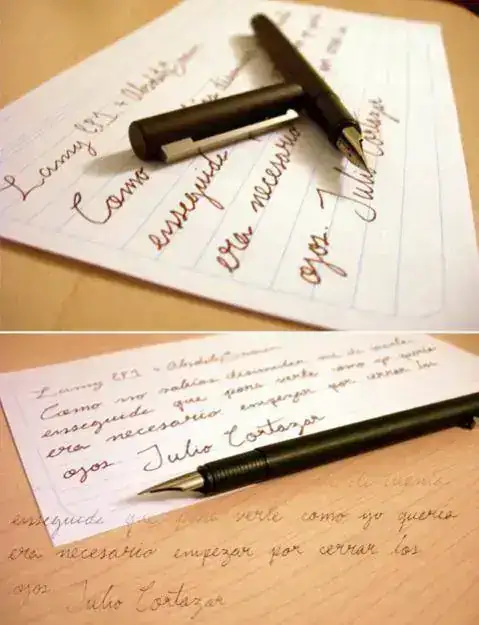 Lamy CP1 + Abdel
Como
esseguida
era necesario
ojos. Julio Cortazar
Lamy CP1 +
Como no sabias disimular me di cuenta
esseguida que para verte como yo queria
era necesario empezar por cerrar los
ojos. Julio Cortazar
di cuenta
esseguida que para verte como yo queria
era necesario empezar por cerrar los
ojos. Julio Cortazar